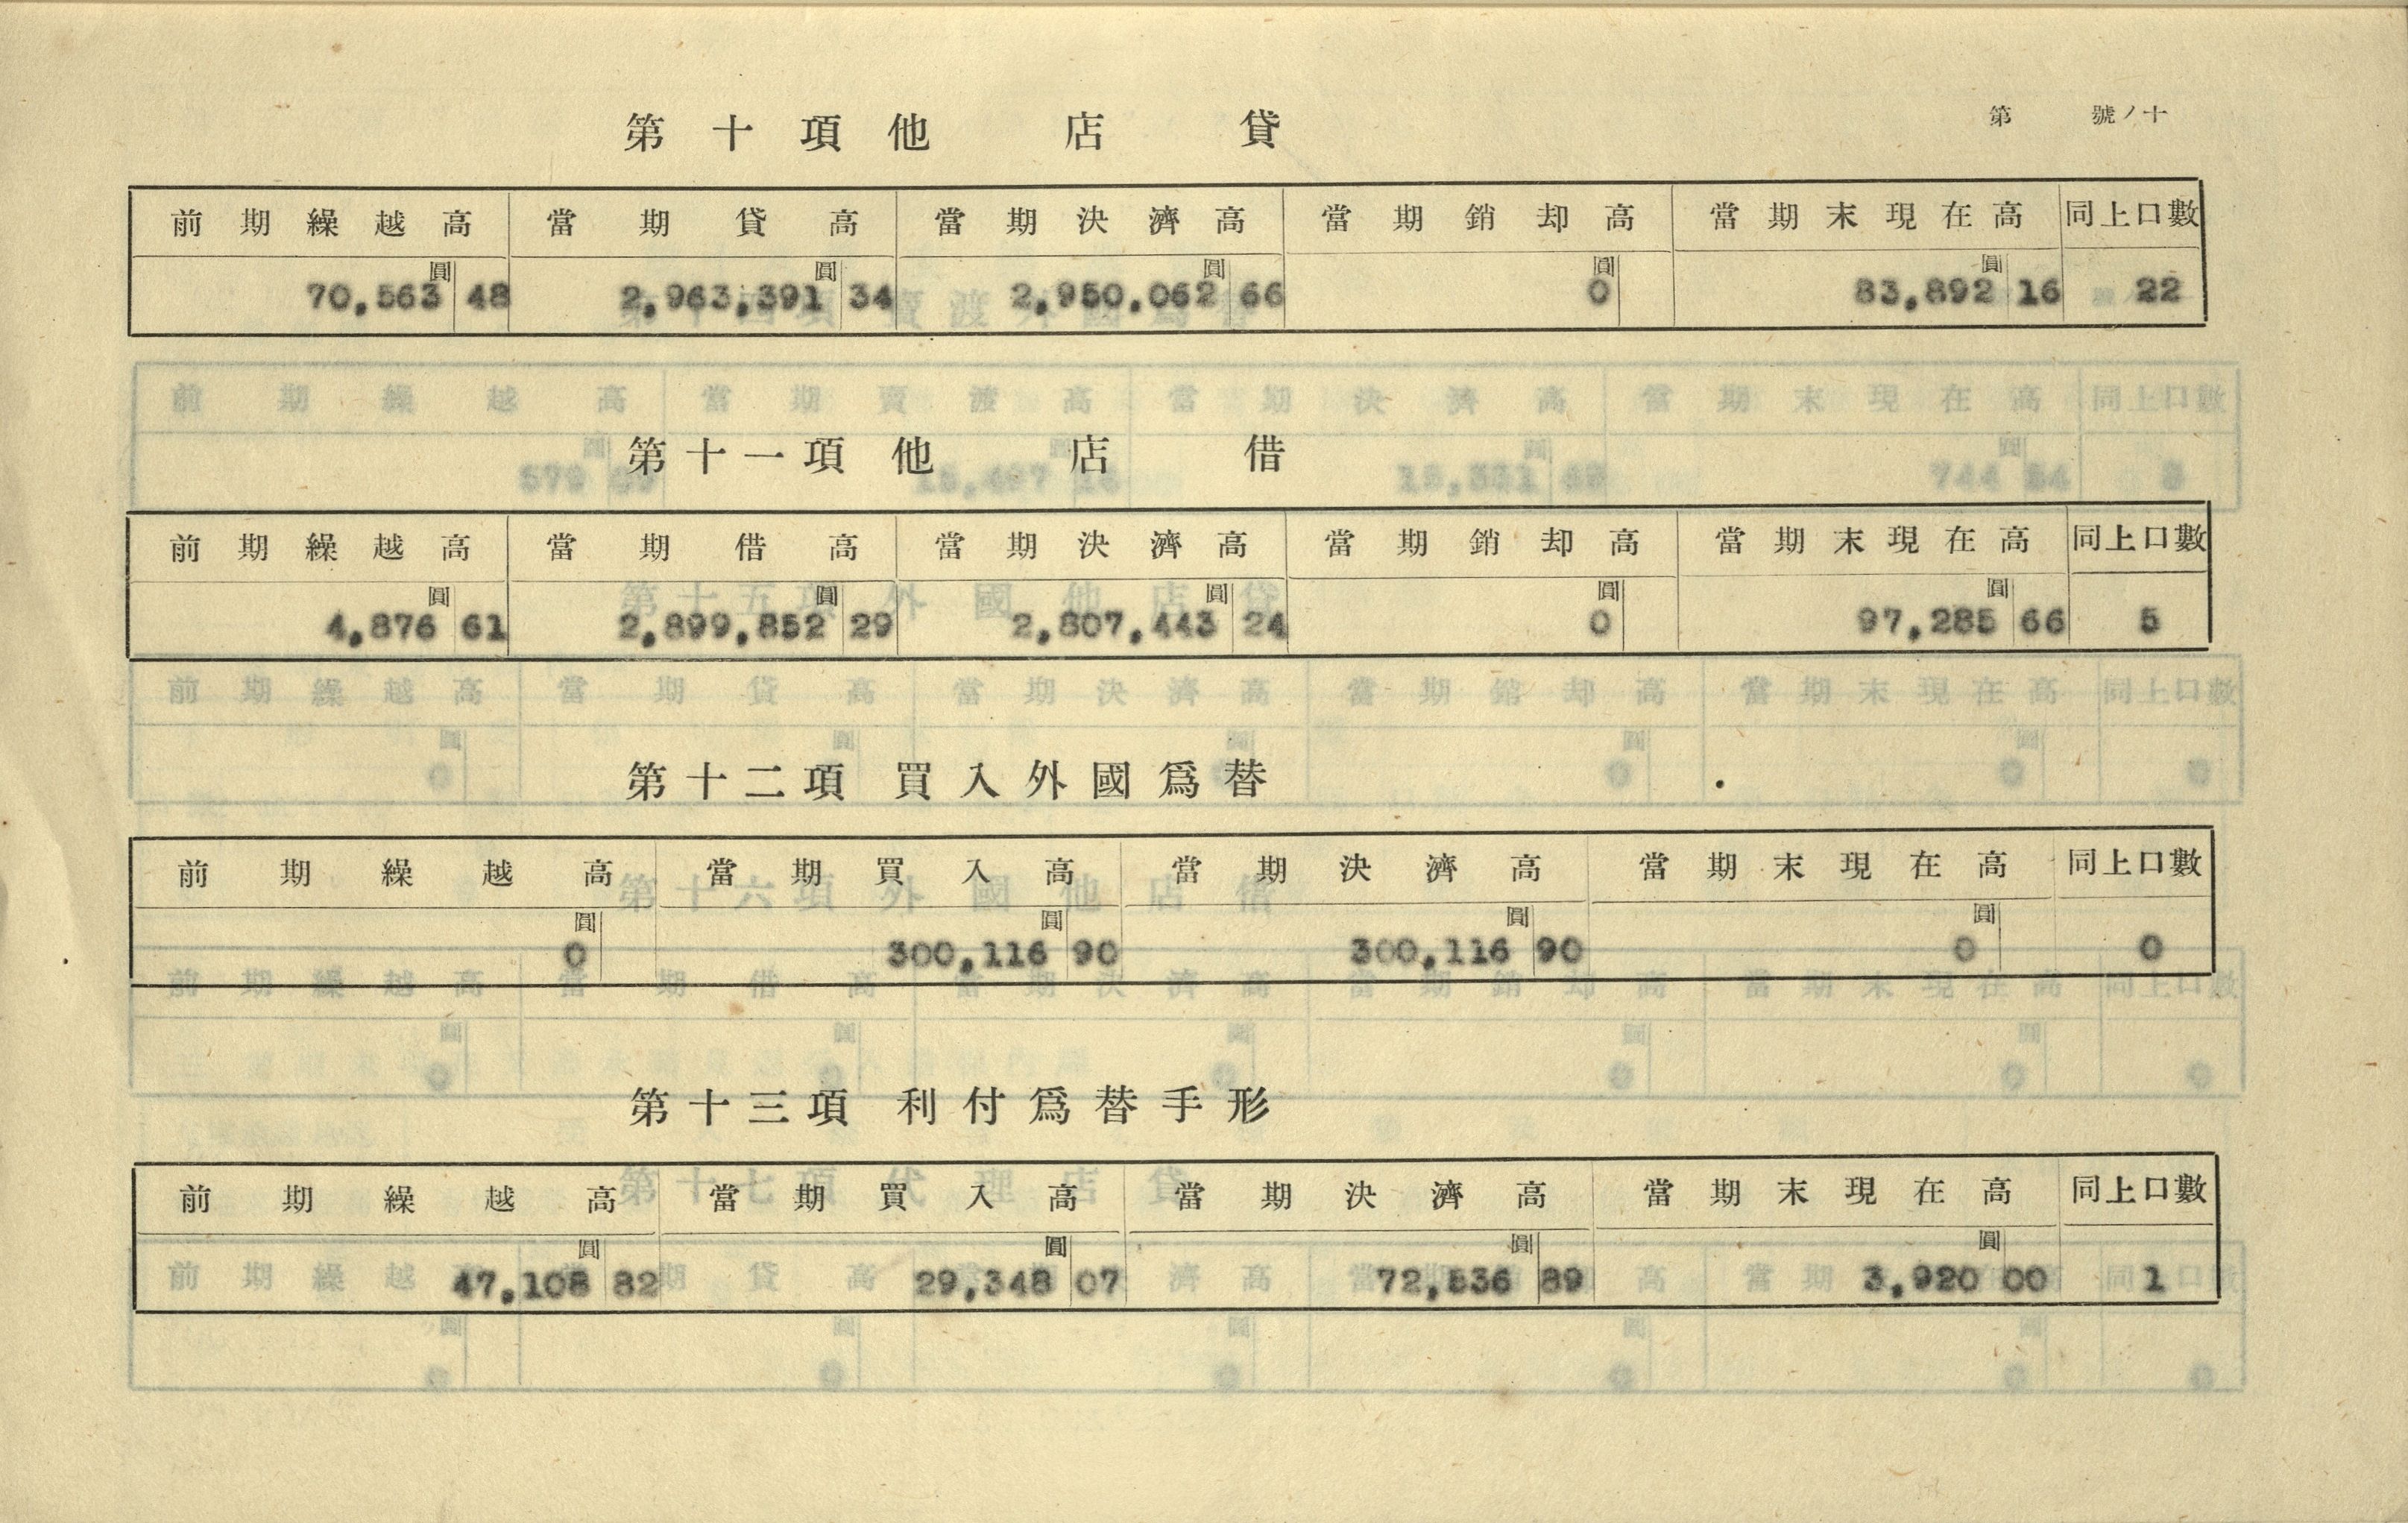 第　號ノ十
第十項 他店貸
前期繰越高 當期貸高 當期決濟高 當期銷却高 當期末現在高 同上口數
圓 圓 圓 圓 圓
70,563 48 2,963,391 34 2,950,062 66 0 83,892 16 22
第十一項 他店借
前期繰越高 當期借高 當期決濟高 當期銷却高 當期末現在高 同上口數
圓 圓 圓 圓 圓
4,876 61 2,899,852 29 2,807,443 24 0 97,285 66 5
第十二項 買入外國爲替
前期繰越高 當期買入高 當期決濟高 當期末現在高 同上口數
圓 圓 圓 圓
0 300,116 90 300,116 90 0 0
第十三項 利付爲替手形
前期繰越高 當期買入高 當期決濟高 當期末現在高 同上口數
圓 圓 圓 圓
47,108 82 29,348 07 72,536 89 3,920 00 1